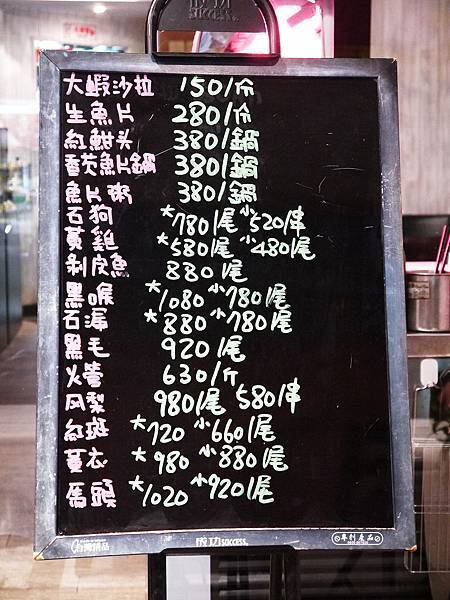 成功
SUCCESS
大蝦沙拉 150/份
生魚片 280/份
紅魽头 380/鍋
香茨魚片鍋 380/鍋
魚片粥 380/鍋
石狗 大780/尾 小520/串
黃雞 大580/尾 小480/尾
剝皮魚 880/尾
黑喉 大1080 小780/尾
石濱 大880 小780/尾
黑毛 920/尾
火管 630/斤
凤梨 980/尾 580/串
紅斑 大720 小660/尾
黃衣 大980 小880/尾
馬頭 大1020 小920/尾
台灣精品 成功SUCCESS. 專利產品